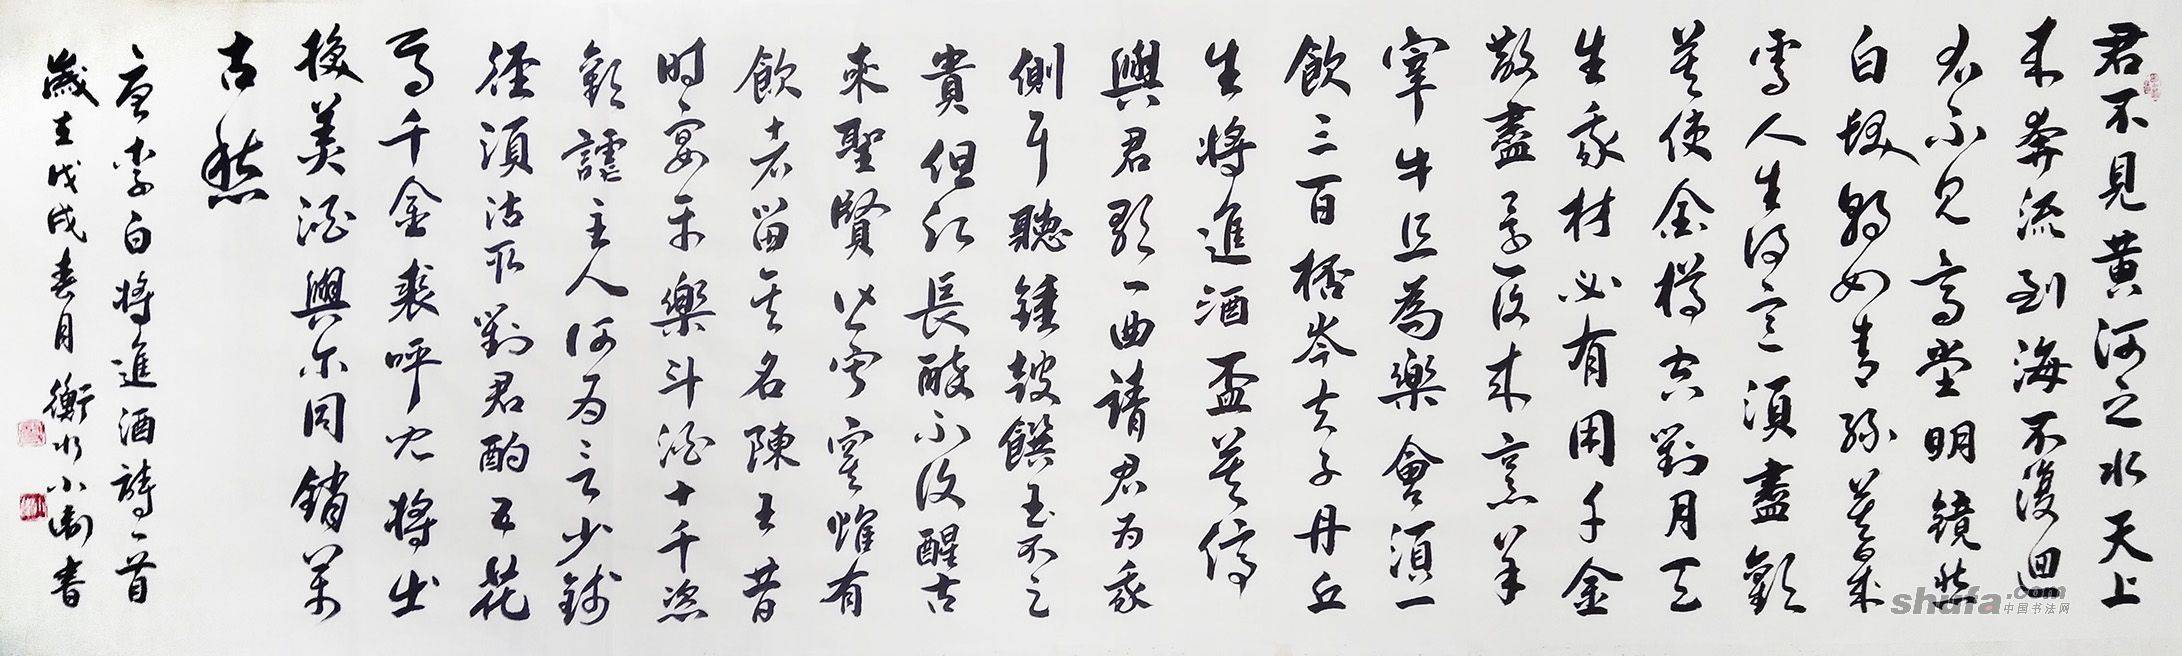 君不見黄河之水天上
来奔流到海不復迴
君不見高堂明鏡悲
白髮朝如青絲莫成
雪人生得意須盡歡
莫使金樽空對月天
生我材必有用千金
散盡還復来烹羊
宰牛且為樂會須一
飲三百杯岑夫子丹丘
生将進酒盃莫停
與君歌一曲請君为我
側耳聽鐘鼓饌玉不足
貴但願長醉不復醒古
来聖賢皆寂寞惟有
飲者留其名陳王昔
时宴平樂斗酒十千恣
歡謔主人何为言少錢
徑須沽取對君酌五花
馬千金裘呼兒将出
換美酒與尔同銷萬
古愁
唐李白将進酒詩一首
歲壬戌春月衡水小衛書
shufa.com
中国书法网